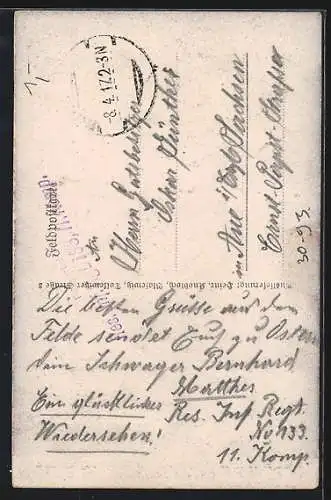 1,-
-8.4.17.2-3N
Feldpostkarte
An
Herrn Gutsbesitzer
Oskar Günther
in Aue i/Erzg. Sachsen
Ernst Papst-Straße
30-93
Die besten Grüsse aus dem
Felde sendet Euch zu Ostern
dein Schwager Bernhard
Matthes
Ein glückliches
Res. Inf Regt.
Wiedersehen!
No 133.
11. Komp.